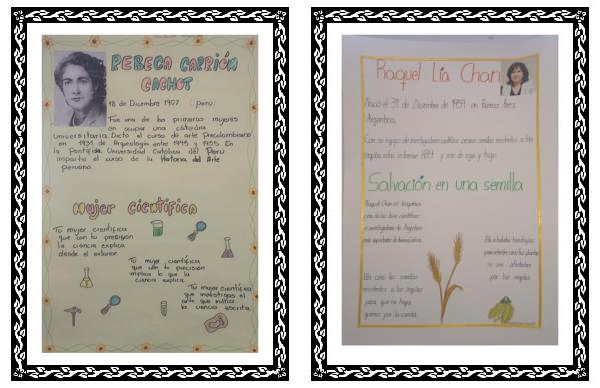 REBECA CARRIÓN
CACHOT
18 de Diciembre 1907 (perú
Fue una de las primeras mujeres
en ocupar una cátedra
universitaria. Dicto el curso de arte Precolombino
en 1931 de Arqueología entre 1945 y 1955. En
la Pontifida Universidad Católica del Perú
impartio el curso de la Historia del Arte
peruano.
Mujer Científica
Tu mujer científica
que con tu precisión
la ciencia explica
desde el exterior.
Tu mujer científica
que con tu precisión
la ciencia explica.
Tu mujer científica
que investigas el
arte que
la ciencia escrita.
Raquel Lía Chan
Nació el 31 de Diciembre de 1959 en Buenos Aires
Argentina.
Con su equipo de investigadores científicos crearon semillas resistentes a las
sequías estas se llaman HB4 y son de soja y trigo.
Salvación en una semilla
Raquel Chan es bioquímica
una de las diez científicas
e investigadoras de Argentina
más de America Latina.
Ella
para las plantas
no se
por las sequías.
Ella creo las semillas
resistentes a las sequías
para que no hayan
por la comida.